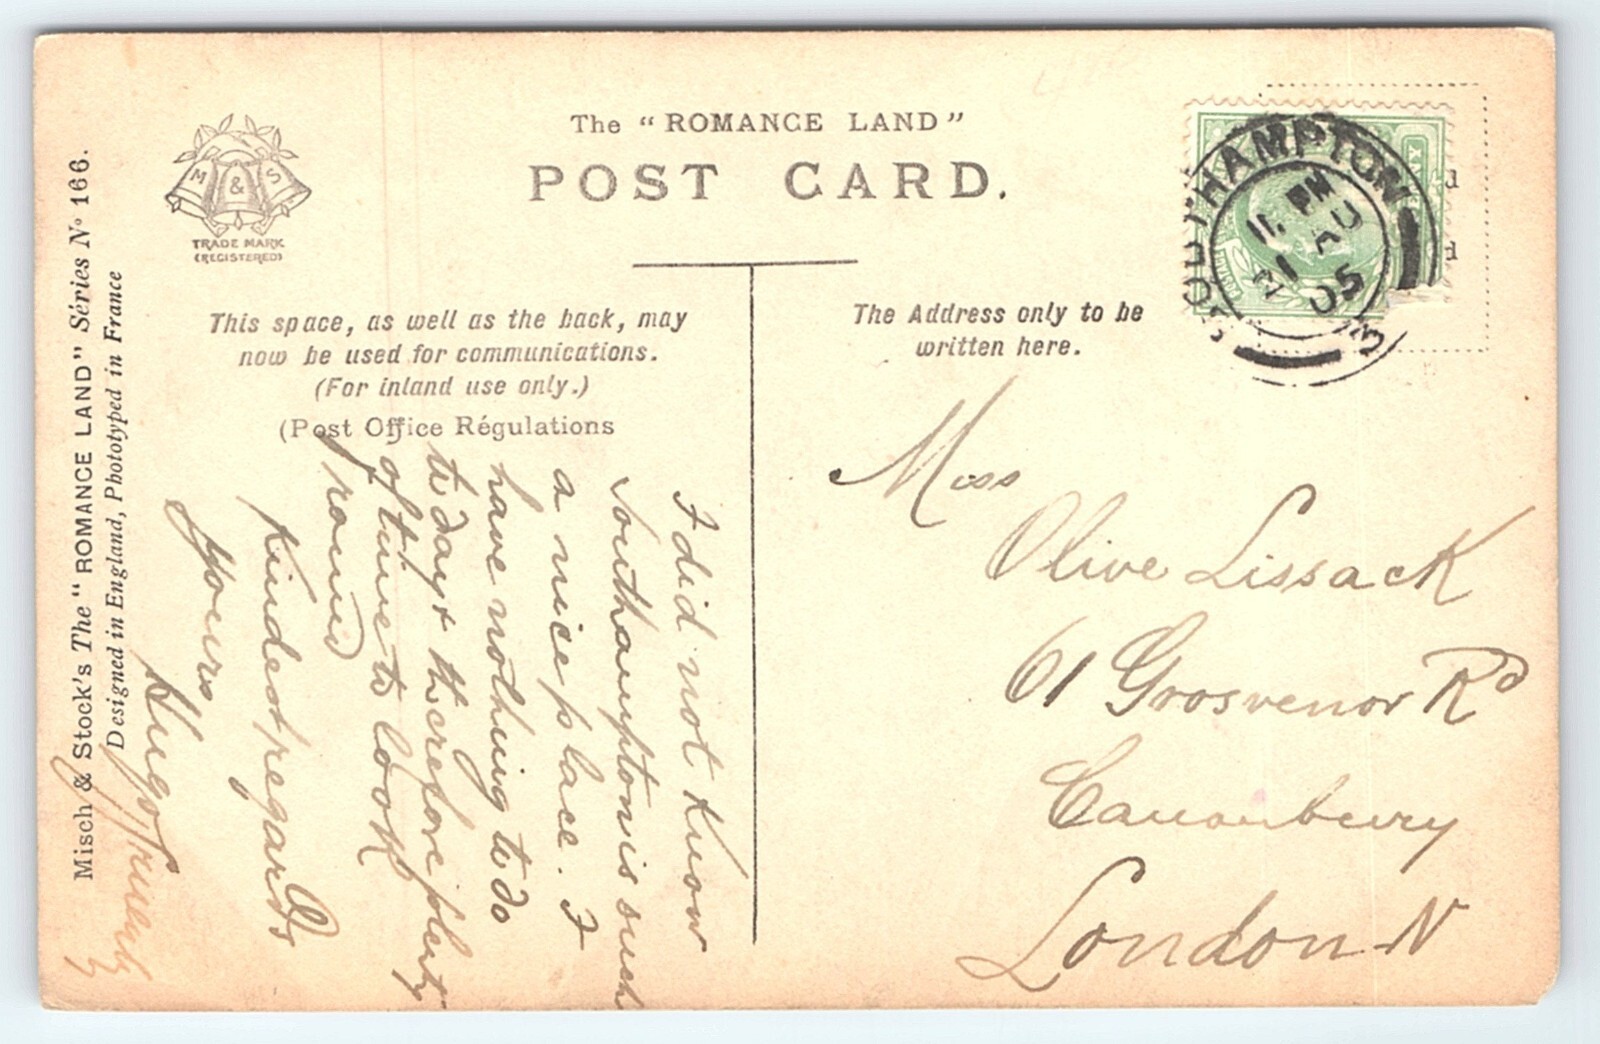 The "ROMANCE LAND"
POST CARD.
M & S
TRADE MARK
(REGISTERED)
Misch & Stock's The "ROMANCE LAND" Séries Nº 166.
Designed in England, Phototyped in France
This space, as well as the back, may
now be used for communications.
(For inland use only.)
(Post Office Régulations
The Address only to be
written here.
SOUTHAMPTON
11. PM
AU
21
05
3
I did not know
Southampton is such
a nice place. I
have nothing to do
to day & therefore plenty
of time to look
round
Kindest regards
Yours
Hugo
Miss
Olive Lissack
61 Grosvenor Rd
Canonbury
London N